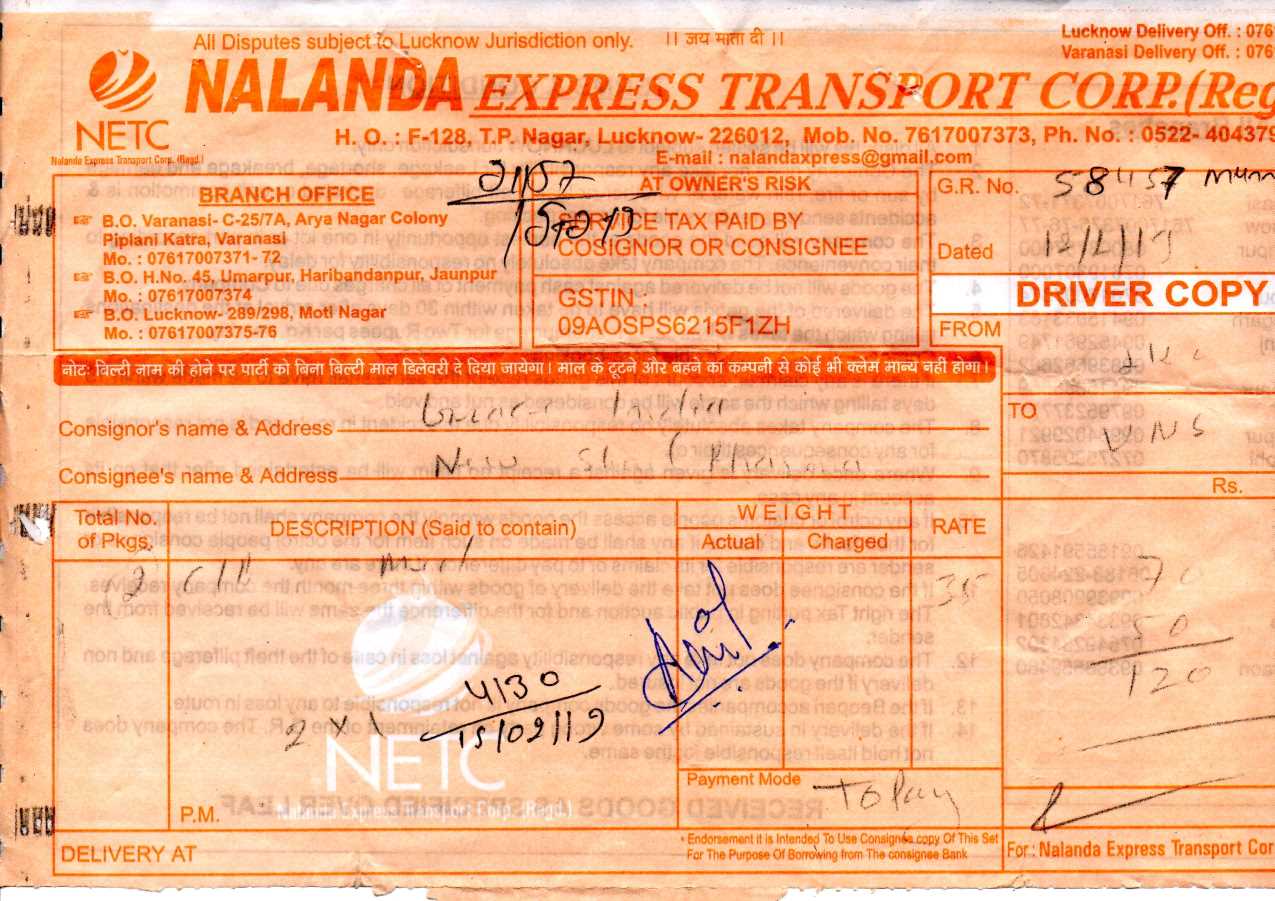 All Disputes subject to Lucknow Jurisdiction only. ।। जय माता दी ।।
Lucknow Delivery Off. : 076
Varanasi Delivery Off. : 076
NALANDA EXPRESS TRANSPORT CORP.(Reg
NETC
Nalanda Express Transport Corp. (Regd.)
H. O. : F-128, T.P. Nagar, Lucknow- 226012, Mob. No. 7617007373, Ph. No. : 0522- 404379
E-mail : nalandaxpress@gmail.com
BRANCH OFFICE
B.O. Varanasi- C-25/7A, Arya Nagar Colony
Piplani Katra, Varanasi
Mo. : 07617007371- 72
B.O. H.No. 45, Umarpur, Haribandanpur, Jaunpur
Mo. : 07617007374
B.O. Lucknow- 289/298, Moti Nagar
Mo. : 07617007375-76
AT OWNER'S RISK
SERVICE TAX PAID BY
COSIGNOR OR CONSIGNEE
GSTIN :
09AOSPS6215F1ZH
G.R. No. 58457
Dated 12/2/19
DRIVER COPY
FROM
नोटः बिल्टी नाम की होने पर पार्टी को बिना बिल्टी माल डिलेवरी दे दिया जायेगा। माल के टूटने और बहने का कम्पनी से कोई भी क्लेम मान्य नही होगा।
TO VNS
Consignor's name & Address India
Consignee's name & Address New
Rs.
Total No.
of Pkgs.
DESCRIPTION (Said to contain)
WEIGHT
Actual Charged
RATE
2
35
70
50
120
4130
15/02/19
2 x 1
NETC
Nalanda Express Transport Corp. (Regd.)
P.M.
Payment Mode To Pay
DELIVERY AT
• Endorsement it is Intended To Use Consignee copy Of This Set
For The Purpose Of Borrowing from The consignee Bank
For : Nalanda Express Transport Cor